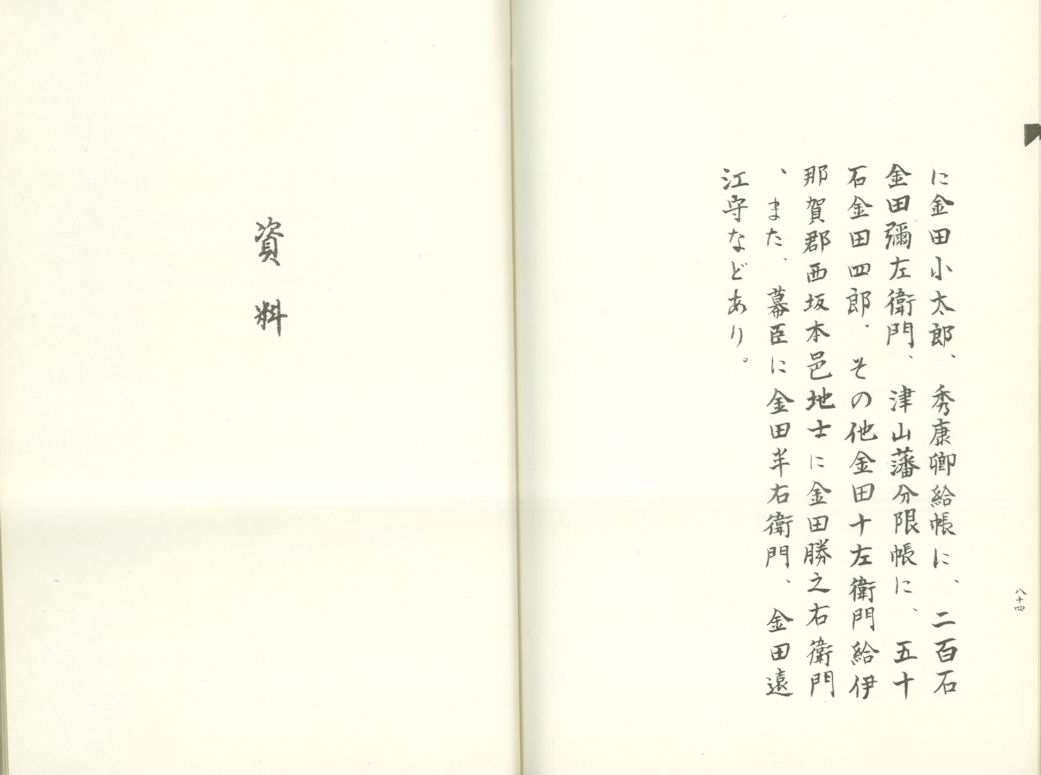 に金田小太郎、秀康卿給帳に、二百石
金田彌左衛門、津山藩分限帳に、五十
石金田四郎、その他金田十左衛門給伊
那賀郡西坂本邑地士に金田勝之右衛門
、また、幕臣に金田半右衛門、金田遠
江守などあり。
八十四
資料